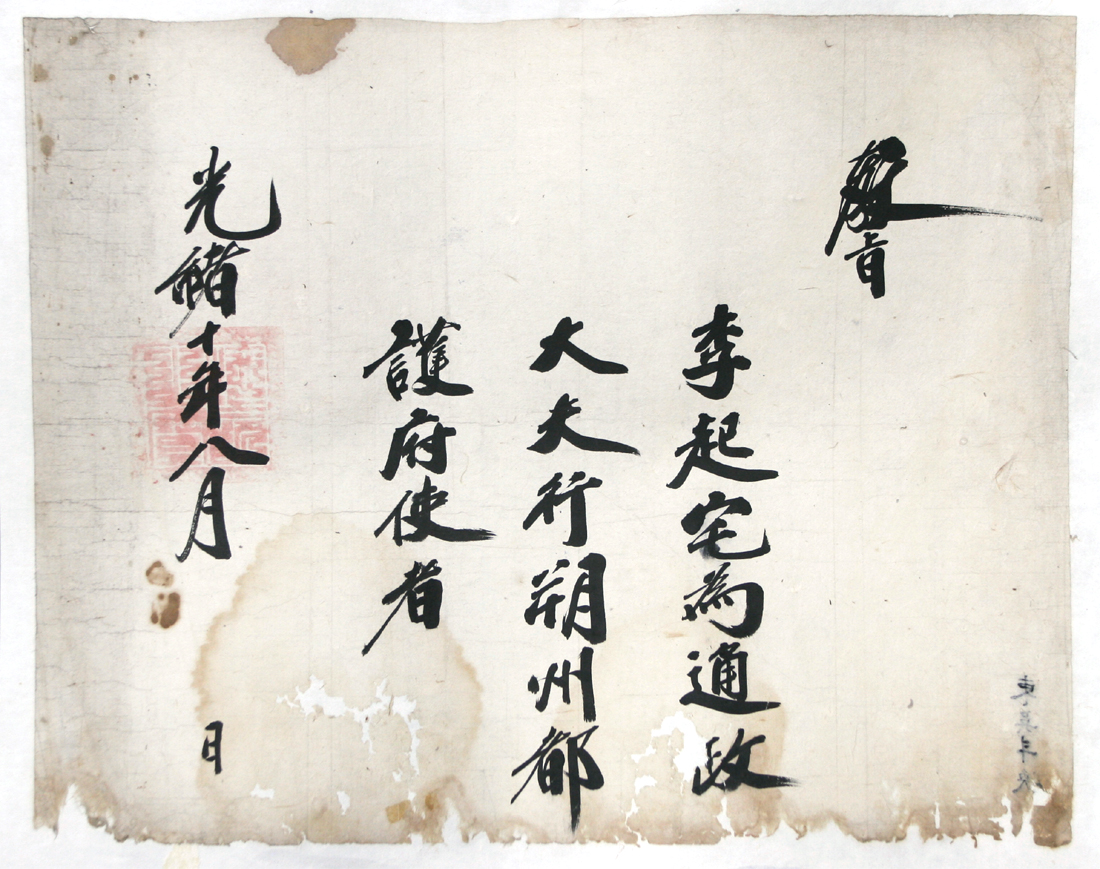 敎旨
李起宅為通政
大夫行朔州都
護府使者
光緖十年八月 日